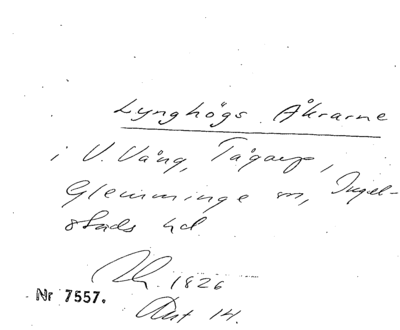 Lynghögs Åkrarne
i V. Vång, Tågarp,
Glemminge sn, Ingel-
stads hd
1826
Nr 7557. Akt 14.